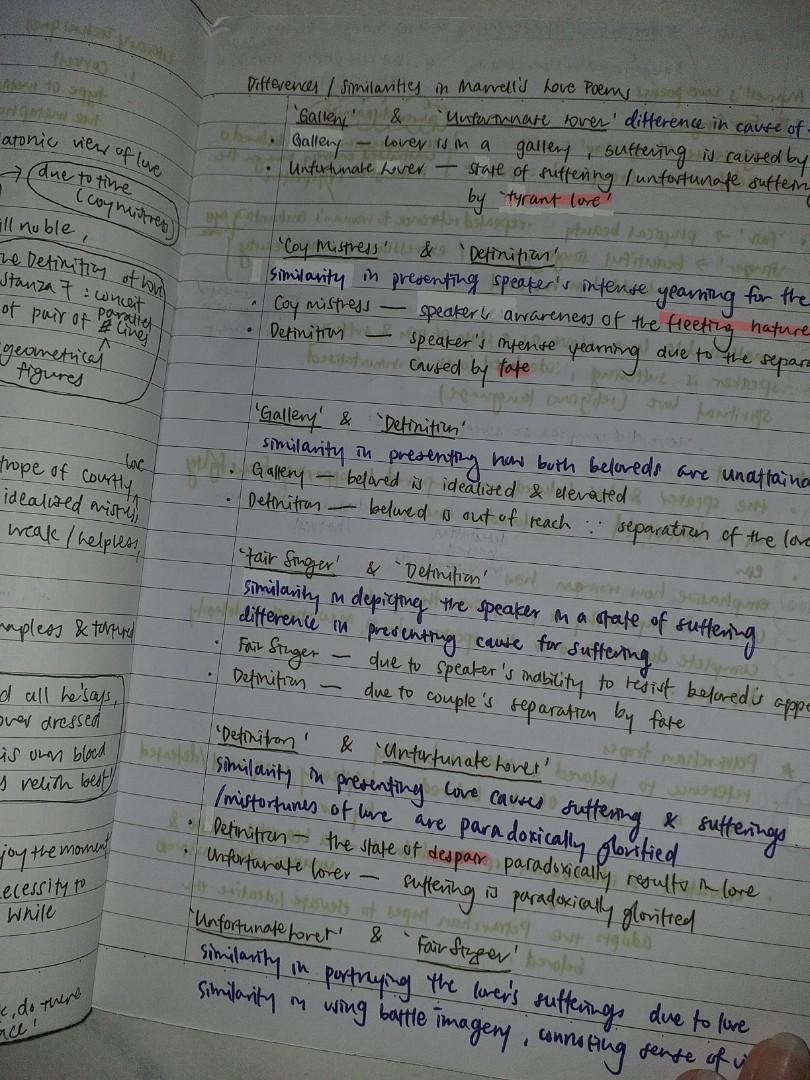 atonic view of love
→ due to time
(coy mistress)
ill noble,
Definition of love
stanza 7 : conceit
of pair of parallel
lines
geometrical
figures
trope of courtly love
idealised
weak / helpless,
hapless & tortured
d all he says,
over dressed
is own blood
s relish best'
joy the moment
ecessity to
while
, do there
Differences / Similarities in Marvell's Love Poems
'Gallery' & 'Unfortunate Lover' difference in cause of
• Gallery — lover is in a gallery, suffering is caused by
• Unfortunate Lover — state of suffering / unfortunate
by 'tyrant love'
'Coy Mistress' & 'Definition'
similarity in presenting speaker's intense yearning for the
• Coy mistress — speaker's awareness of the fleeting nature
• Definition — speaker's intense yearning due to the
caused by fate
'Gallery' & 'Definition'
similarity in presenting how both beloveds are
• Gallery — beloved is idealised & elevated
• Definition — beloved is out of reach ∵ separation of the
'Fair Singer' & 'Definition'
similarity in depicting the speaker in a state of suffering
difference in presenting cause for suffering
• Fair Singer — due to speaker's inability to resist beloved's
• Definition — due to couple's separation by fate
'Definition' & 'Unfortunate Lover'
similarity in presenting love causes suffering & sufferings
/misfortunes of love are paradoxically glorified
• Definition — the state of despair paradoxically results in love
• Unfortunate lover — suffering is paradoxically glorified
'Unfortunate Lover' & 'Fair Singer'
similarity in portraying the lover's sufferings due to love
similarity in using battle imagery, connoting sense of